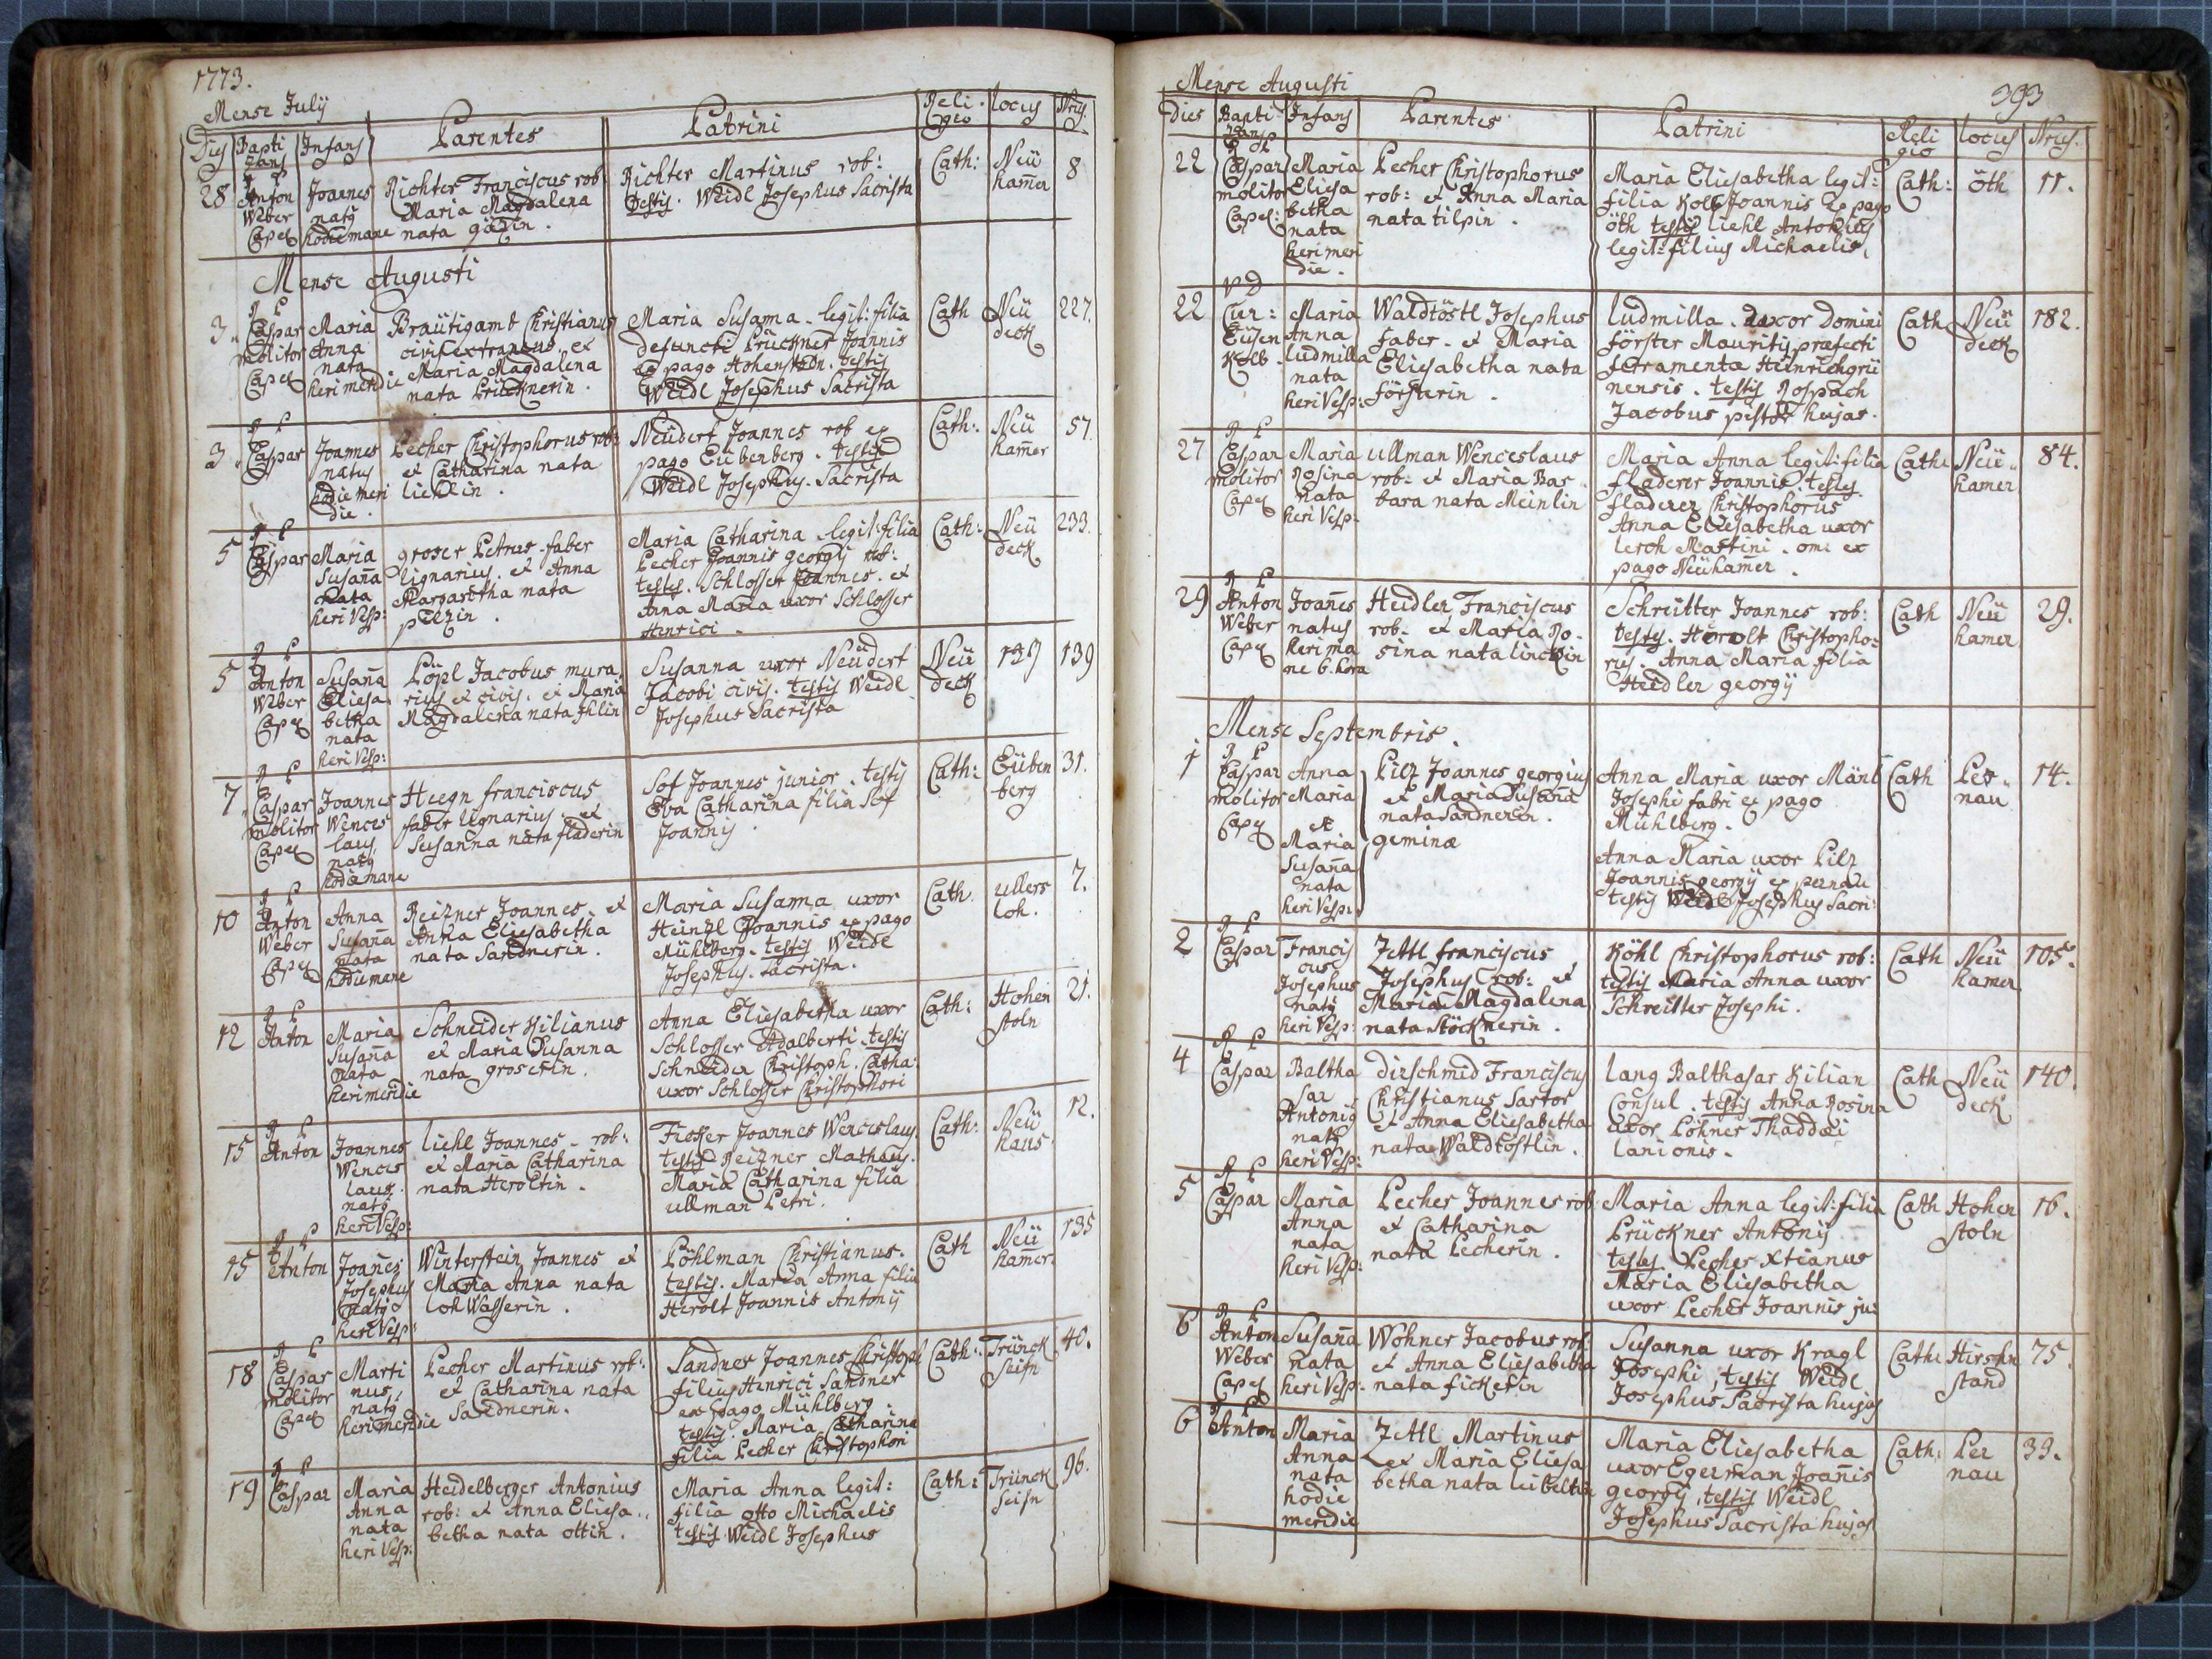 1773.
Mense July
Dies Bapti zans Infans Parentes Patrini Reli gio locus Nrus.
28 R P Anton Weber Capel Joanes natq hodie mane
Richter Franciscus rob:
Maria Magdalena
nata
Richter Martinus rob:
testis. Weidl Josephus Sacrista
Cath: Neü ham̄er 8
Mense Augusti
3. R P Caspar Molitor Capel Maria Anna nata heri meridie
Braütigamb Christianus
civis extraneus. et
Maria Magdalena
nata Prücknerin.
Maria Susanna. legit: filia
defuncti Prückner Joannis
ex pago Hohenstoln. testis
Weidl Josephus Sacrista
Cath Neü deck 227.
3. R P Caspar Joannes natus hodie meri die.
Pecher Christophorus rob:
et Catharina nata
liehlin.
Neüdert Joannes rob ex
pago Eübenberg. testis
Weidl Josephus. Sacrista
Cath: Neü ham̄er 57.
5 R P Caspar Maria Susan̄a nata heri Vesp:
groser Petrus faber
lignarius. et Anna
Margaretha nata
pilzin.
Maria Catharina legit: filia
Pecher Joannis georgÿ rob:
testes. Schlosser Joannes. et
Anna Maria uxor Schlosser
Henrici.
Cath: Neü deck 233.
5 R P Anton Weber Capel Susan̄a Eliesa betha nata heri Vesp:
Löpl Jacobus mura
rius et civis. et Maria
Magdalena nata
Susanna uxor Neüdert
Jacobi civis. testis Weidl
Josephus Sacrista
Neü deck 139 139
7. R P Caspar Molitor Capel Joannes Wences laus natq hodie mane
Heegn franciscus
faber lignarius. et
Susanna nata fladerin
Sof Joannes junior. testis
Eva Catharina filia Sof
Joannis.
Cath: Eüben berg 31.
10 R P Anton Weber Capel Anna Susan̄a nata hodie mane
Reizner Joannes. et
Anna Eliesabetha
nata Sandnerin.
Maria Susanna uxor
Heinzl Joannis ex pago
Mühlberg. testis Weidl
Josephus. Sacrista.
Cath. ullers loh. 7.
12 R P Anton Maria Susan̄a nata heri meridie
Schneider Kilianus
et Maria Susanna
nata groserin.
Anna Eliesabetha uxor
Schlosser Adalberti. testes
Schneider Christoph. Catha:
uxor Schlosser Christophori
Cath: Hohen stoln 21.
15 R P Anton Joannes Wences laus. natq heri Vesp:
liehl Joannes. rob:
et Maria Catharina
nata Heroltin.
Fischer Joannes Wenceslaus.
testes Reizner Mathæus.
Maria Catharina filia
ullman Petri.
Cath: Neü haus 12.
15 R P Anton Joan̄es Josephus natq heri Vesp:
Winterstein Joannes et
Maria Anna nata
lohWasserin.
Pöhlman Christianus.
testis. Maria Anna filia
Herolt Joannis Antonÿ
Cath Neü ham̄er. 135
18 R P Caspar Molitor Capel Marti nus natq heri meridie
Pecher Martinus rob:
et Catharina nata
Sandnerin.
Sandner Joannes Christoph
filius Henrici Sandner
ex pago Mühlberg.
testis. Maria Catharina
filia Pecher Christophori
Cath: Trünck seifn 40.
19 R P Caspar Maria Anna nata heri Vesp:
Heidelberger Antonius
rob: et Anna Eliesa..
betha nata ottin.
Maria Anna legit:
filia otto Michaelis
testis Weidl Josephus
Cath: Trünck seifn 96.
Mense Augusti
393
Dies Bapti zans Infans Parentes Patrini Reli gio locus Nrus.
22 R P Caspar Molitor Capel: Maria Eliesa betha nata heri meri die.
Pecher Christophorus
rob: et Anna Maria
nata tilpin.
Maria Eliesabetha legit:
filia Kolb Joannis ex pago
öth testis liehl Antonius
legit: filius Michaelis.
Cath: öth 11.
22 Cur: Eüsen Kolb Maria Anna ludmilla nata heri Vesp:
Waldtöstl Josephus
faber. et Maria
Eliesabetha nata
försterin.
ludmilla. uxor Domini
förster Mauritÿ præfecti
ferramenta Heinrichgrü
nensis. testis Rospach
Jacobus pistor hujas.
Cath Neü deck 182.
27 R P Caspar Molitor Capel Maria Rosina nata heri Vesp:
ullman Wenceslaus
rob: et Maria Bar
bara nata Meinlin
Maria Anna legit: filia
fladerer Joannis. testes
fladerer Christophorus
Anna Eliesabetha uxor
lerch Martini. om: ex
pago Neühamer.
Cath: Neü.. hamer 84.
29 R P Anton Weber Capel Joan̄es natus heri ma ne 6. hora
Heidler Franciscus
rob: et Maria Ro
sina nata
Schreitter Joannes rob:
testes. Herolt Christopho:
rus. Anna Maria filia
Heidler georgÿ
Cath Neü hamer 29.
Mense Septembris.
1 R P Caspar Molitor Capel Anna Maria et Maria Susan̄a nata heri Vesp:
Pilz Joannes georgius
et Maria Susan̄a
nata Sandnerin.
geminæ
Anna Maria uxor Mänl
Josephi fabri ex pago
Mühlberg.
Anna Maria uxor Pilz
Joannis georgÿ ex pernau
testis Weidl Josephus Sacri:
Cath Per.. nau 14.
2 R P Caspar Francis cus Josephus natq heri Vesp:
Zettl franciscus
Josephus rob: et
Maria Magdalena
nata Stöcknerin.
Köhl Christophorus rob:
testis Maria Anna uxor
Schreitter Josephi.
Cath Neü hamer 105.
4 R P Caspar Baltha sar Antoniq natq heri Vesp:
dirschmid Franciscus
Christianus Sartor
et Anna Eliesabetha
nata Waldtöstlin.
lang Balthasar Kilian
Consul. testis Anna Rosina
uxor Löhner Thaddæi
lanionis.
Cath Neü deck 140.
5 R P Caspar Maria Anna nata heri Vesp:
Pecher Joannes rob:
et Catharina
nata Pecherin.
Maria Anna legit: filia
Prückner Antonÿ
testes. Pecher Xtianus
Maria Eliesabetha
uxor Pecher Joannis ju:
Cath Hohen stoln 16.
6 R P Anton Weber Capel Susan̄a nata heri Vesp:
Wohner Jacobus rob:
et Anna Eliesabetha
nata fickerin
Susanna uxor Kragl
Josephi, testis Weidl
Josephus Sacrista hujas
Cath: Hirschn stand 75.
6 R P Anton Maria Anna nata hodie meridie
Zettl Martinus
et Maria Eliesa
betha nata leibeltin
Maria Eliesabetha
uxor Egerman Joan̄is
georgÿ, testis Weidl
Josephus Sacrista hujas
Cath: Per nau 33.